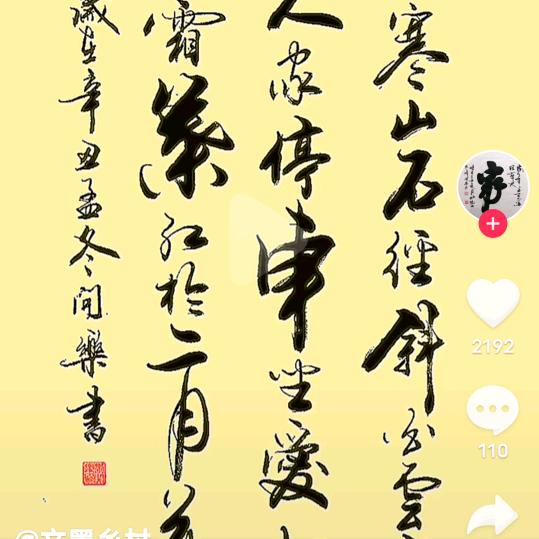 寒山石徑斜白雲
人家停車坐愛
霜葉紅於二月花
歲在辛丑孟冬開樂書
2192
110
@文墨乡村